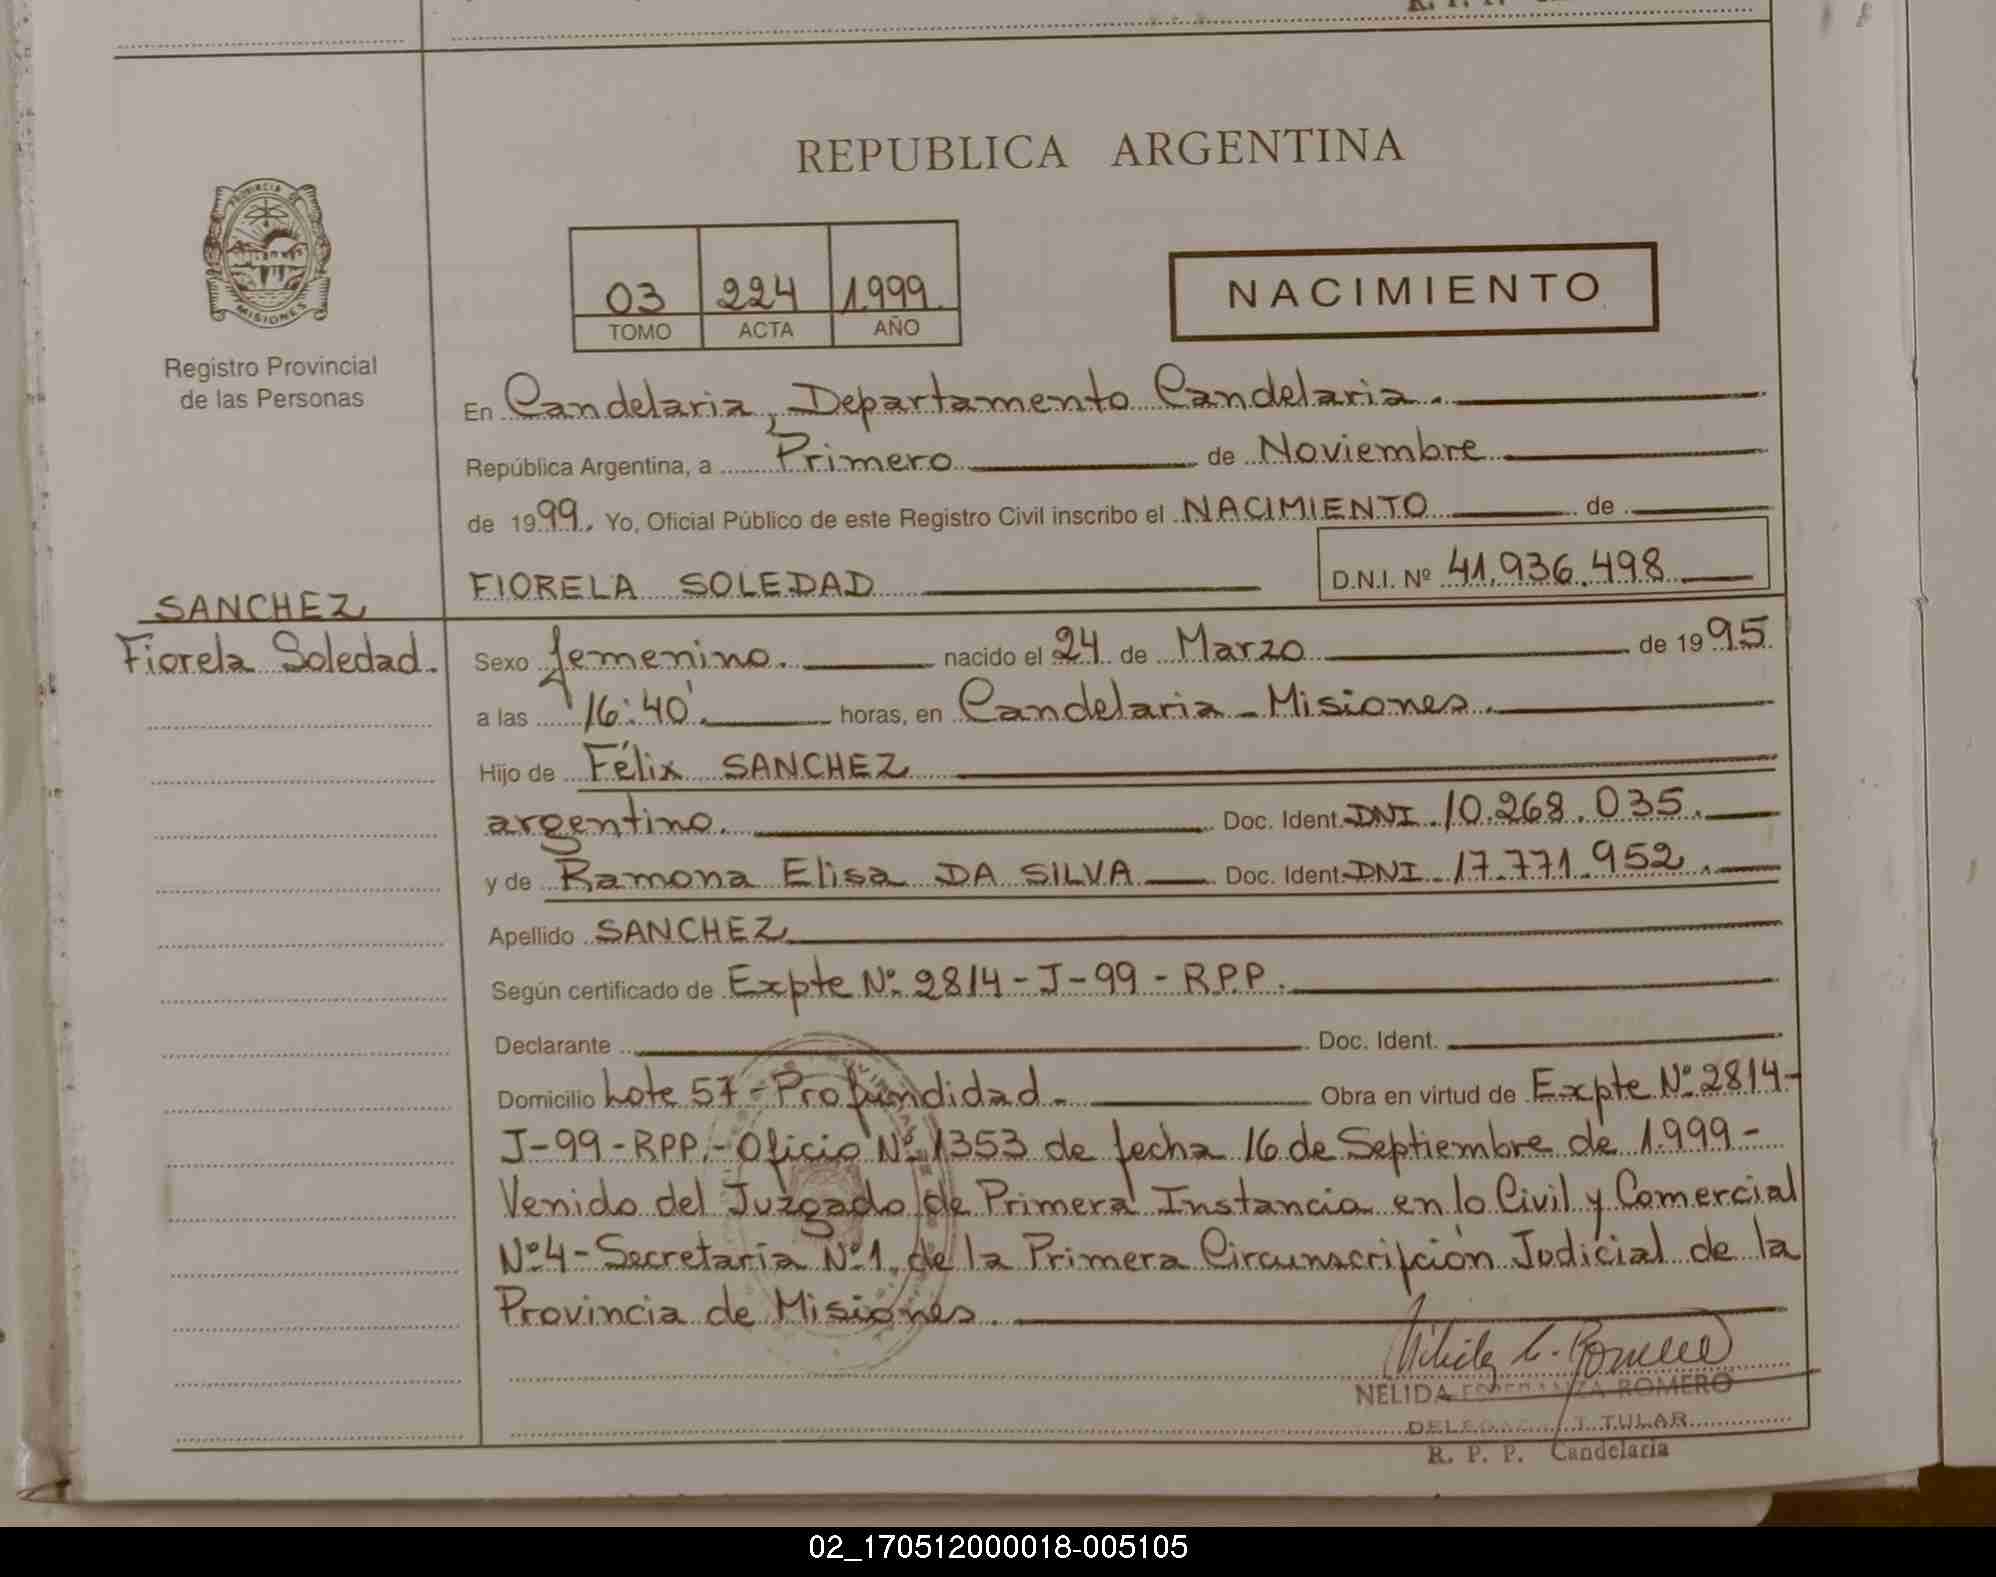 REPUBLICA ARGENTINA
PROVINCIA DE
MISIONES
Registro Provincial
de las Personas
03 224 1999
TOMO ACTA AÑO
NACIMIENTO
En Candelaria, Departamento Candelaria.
República Argentina, a Primero de Noviembre
de 1999. Yo, Oficial Público de este Registro Civil inscribo el NACIMIENTO de
FIORELA SOLEDAD D.N.I. Nº 41.936.498
SANCHEZ
Fiorela Soledad.
Sexo femenino. nacido el 24 de Marzo de 1995
a las 16:40'. horas, en Candelaria - Misiones.
Hijo de Félix SANCHEZ
argentino. Doc. Ident. DNI. 10.268.035.
y de Ramona Elisa DA SILVA Doc. Ident. DNI. 17.771.952.
Apellido SANCHEZ
Según certificado de Expte Nº 2814-J-99-RPP.
Declarante Doc. Ident.
Domicilio Lote 57 - Profundidad. Obra en virtud de Expte Nº 2814-
J-99-RPP.- Oficio Nº 1353 de fecha 16 de Septiembre de 1.999-
Venido del Juzgado de Primera Instancia en lo Civil y Comercial
Nº 4- Secretaría Nº 1, de la Primera Circunscripción Judicial de la
Provincia de Misiones.
NELIDA ESPERANZA ROMERO
DELEGADA TITULAR
R. P. P. Candelaria
02_170512000018-005105